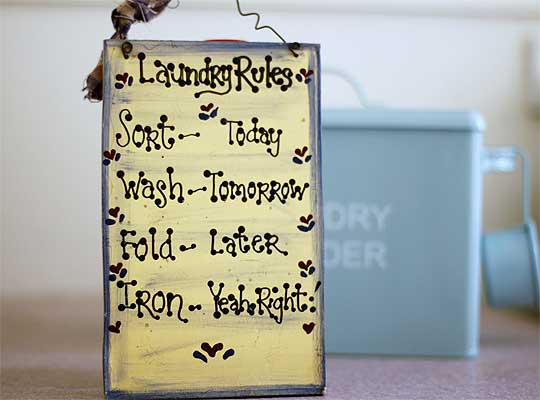 Laundry Rules
Sort - Today
Wash - Tomorrow
Fold - Later
Iron - Yeah, Right!